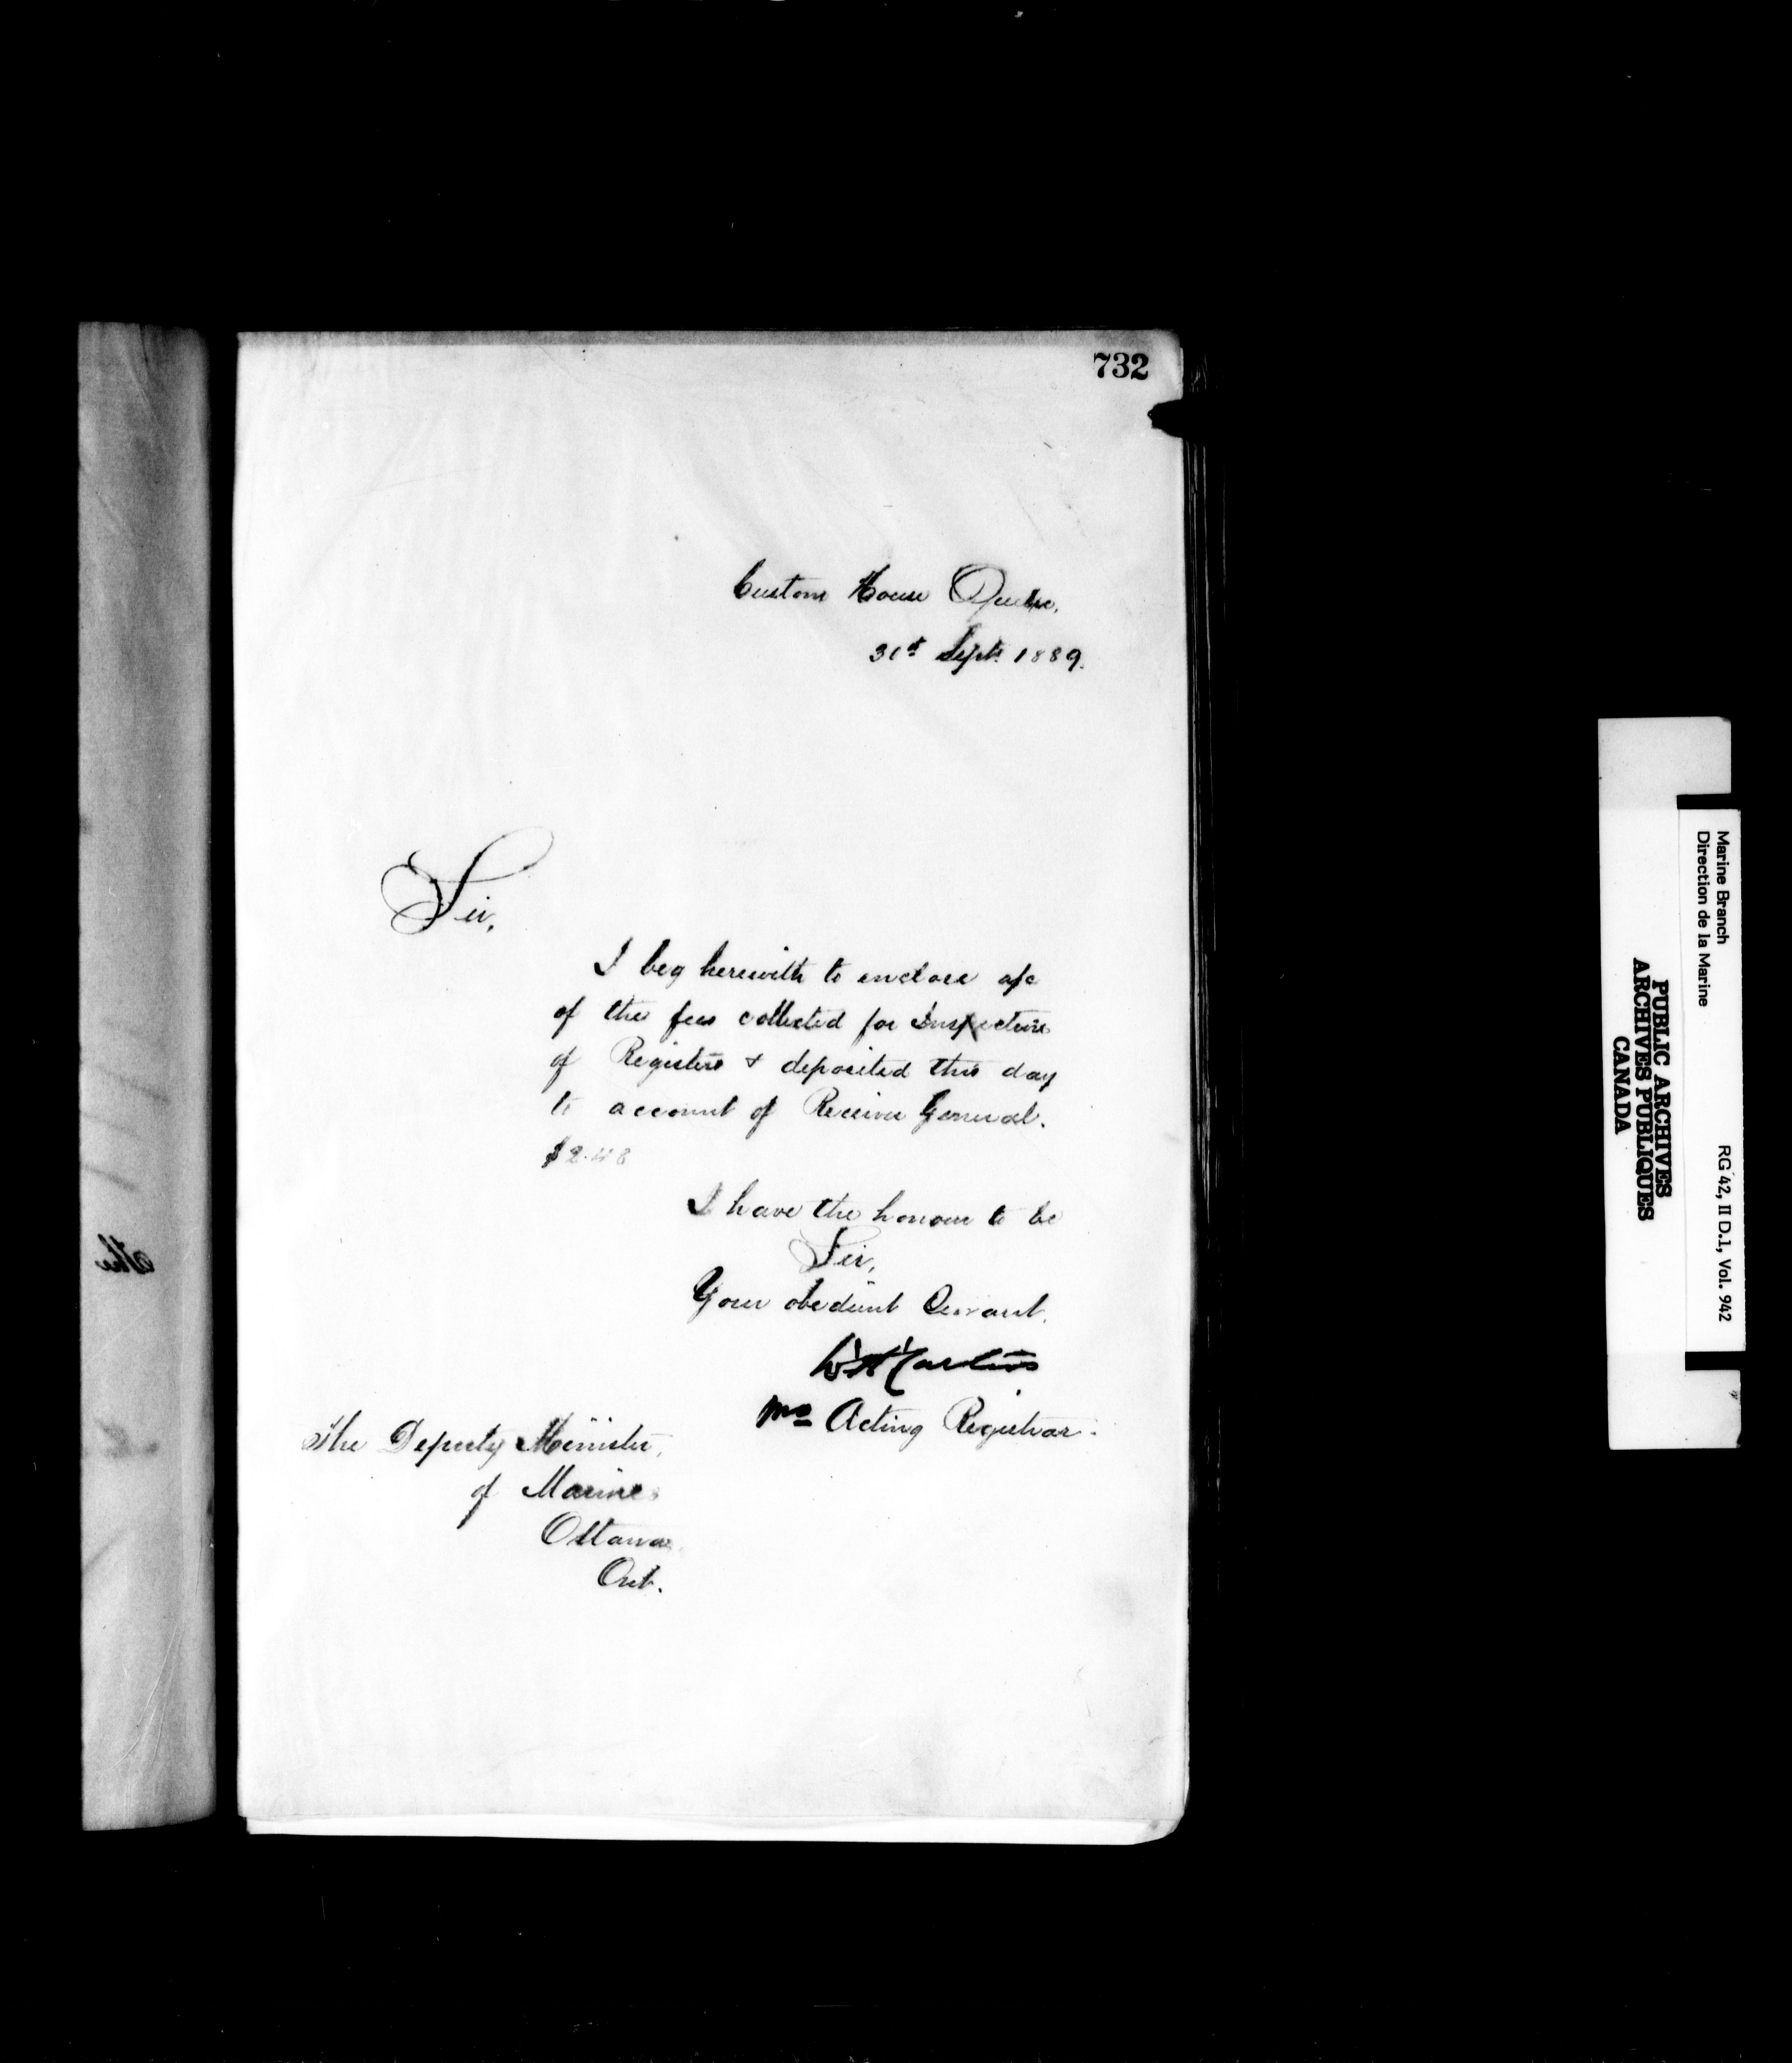 732
Custom House Quebec.
Sept. 1889.
Sir,
I beg herewith to enclose a/c
of the fees collected for Inspection
of Registers & deposited this day
to account of Receiver General.
$2.48
I have the honour to be
Sir,
Your obedient Servant.
Acting Registrar.
The Deputy Minister,
of Marine
Ottawa
Ont.
The
Marine Branch
Direction de la Marine
RG 42, II D.1, Vol. 942
PUBLIC ARCHIVES
ARCHIVES PUBLIQUES
CANADA